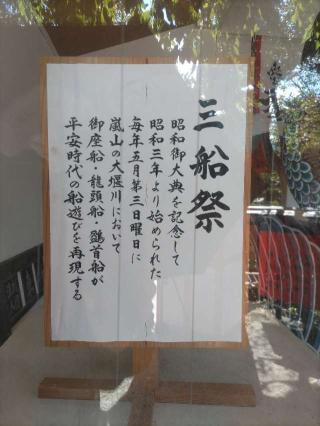 三船祭
昭和御大典を記念して
昭和三年より始められた
毎年五月第三日曜日に
嵐山の大堰川において
御座船・龍頭船・鷁首船が
平安時代の船遊びを再現する